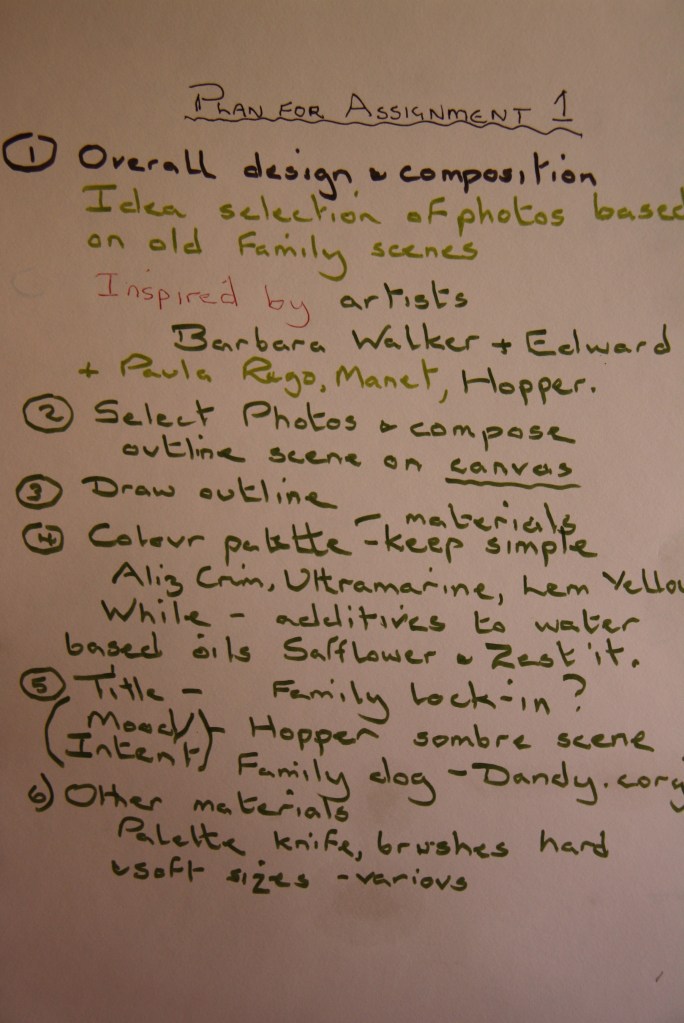 PLAN FOR ASSIGNMENT 1
① Overall design & composition
Idea selection of photos based
on old Family scenes
Inspired by artists
Barbara Walker + Edward
+ Paula Rego, Manet, Hopper.
② Select Photos & compose
outline scene on canvas
③ Draw outline
– materials
④ Colour palette – keep simple
Aliz Crim, Ultramarine, Lem Yellow
While – additives to water
based oils Safflower & Zest it.
⑤ Title – Family lock-in?
(Mood/ – Hopper sombre scene
Intent) Family dog – Dandy. corg
6) Other materials
Palette knife, brushes hard
& soft sizes – various